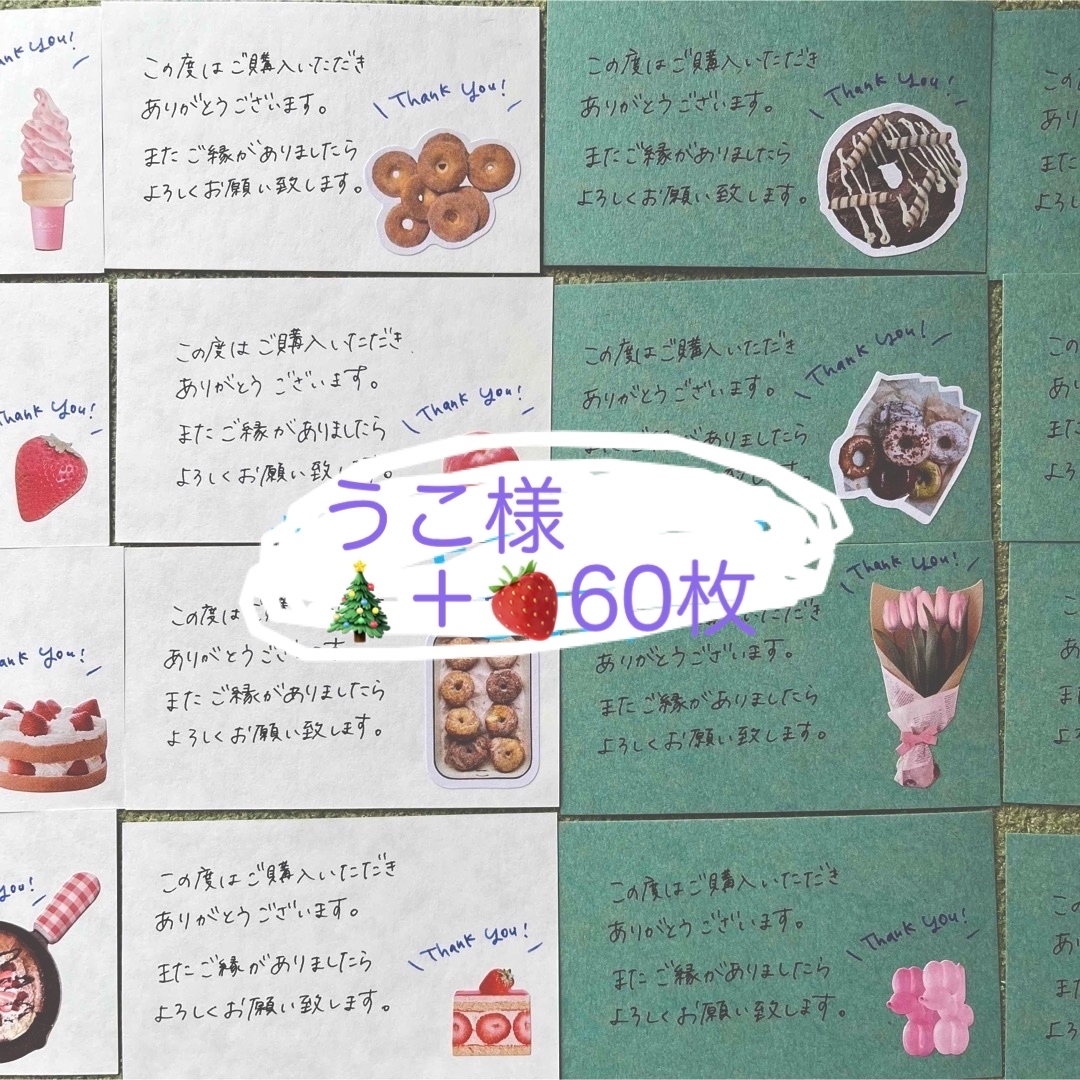 Thank You!
この度はご購入いただき
ありがとうございます。
またご縁がありましたら
よろしくお願い致します。
Thank You!
この度はご購入いただき
ありがとうございます。
またご縁がありましたら
よろしくお願い致します。
Thank You!
Thank You!
この度はご購入いただき
ありがとうございます。
またご縁がありましたら
よろしくお願い致します。
Thank You!
この度はご購入いただき
ありがとうございます。
またご縁がありましたら
Thank You!
うこ様
+60枚
Thank You!
この度はご
ありがとうございます。
またご縁がありましたら
よろしくお願い致します。
いただき
ありがとうございます。
またご縁がありましたら
よろしくお願い致します。
Thank You!
You!
この度はご購入いただき
ありがとうございます。
またご縁がありましたら
よろしくお願い致します。
Thank You!
この度はご購入いただき
ありがとうございます。
またご縁がありましたら
よろしくお願い致します。
Thank You!